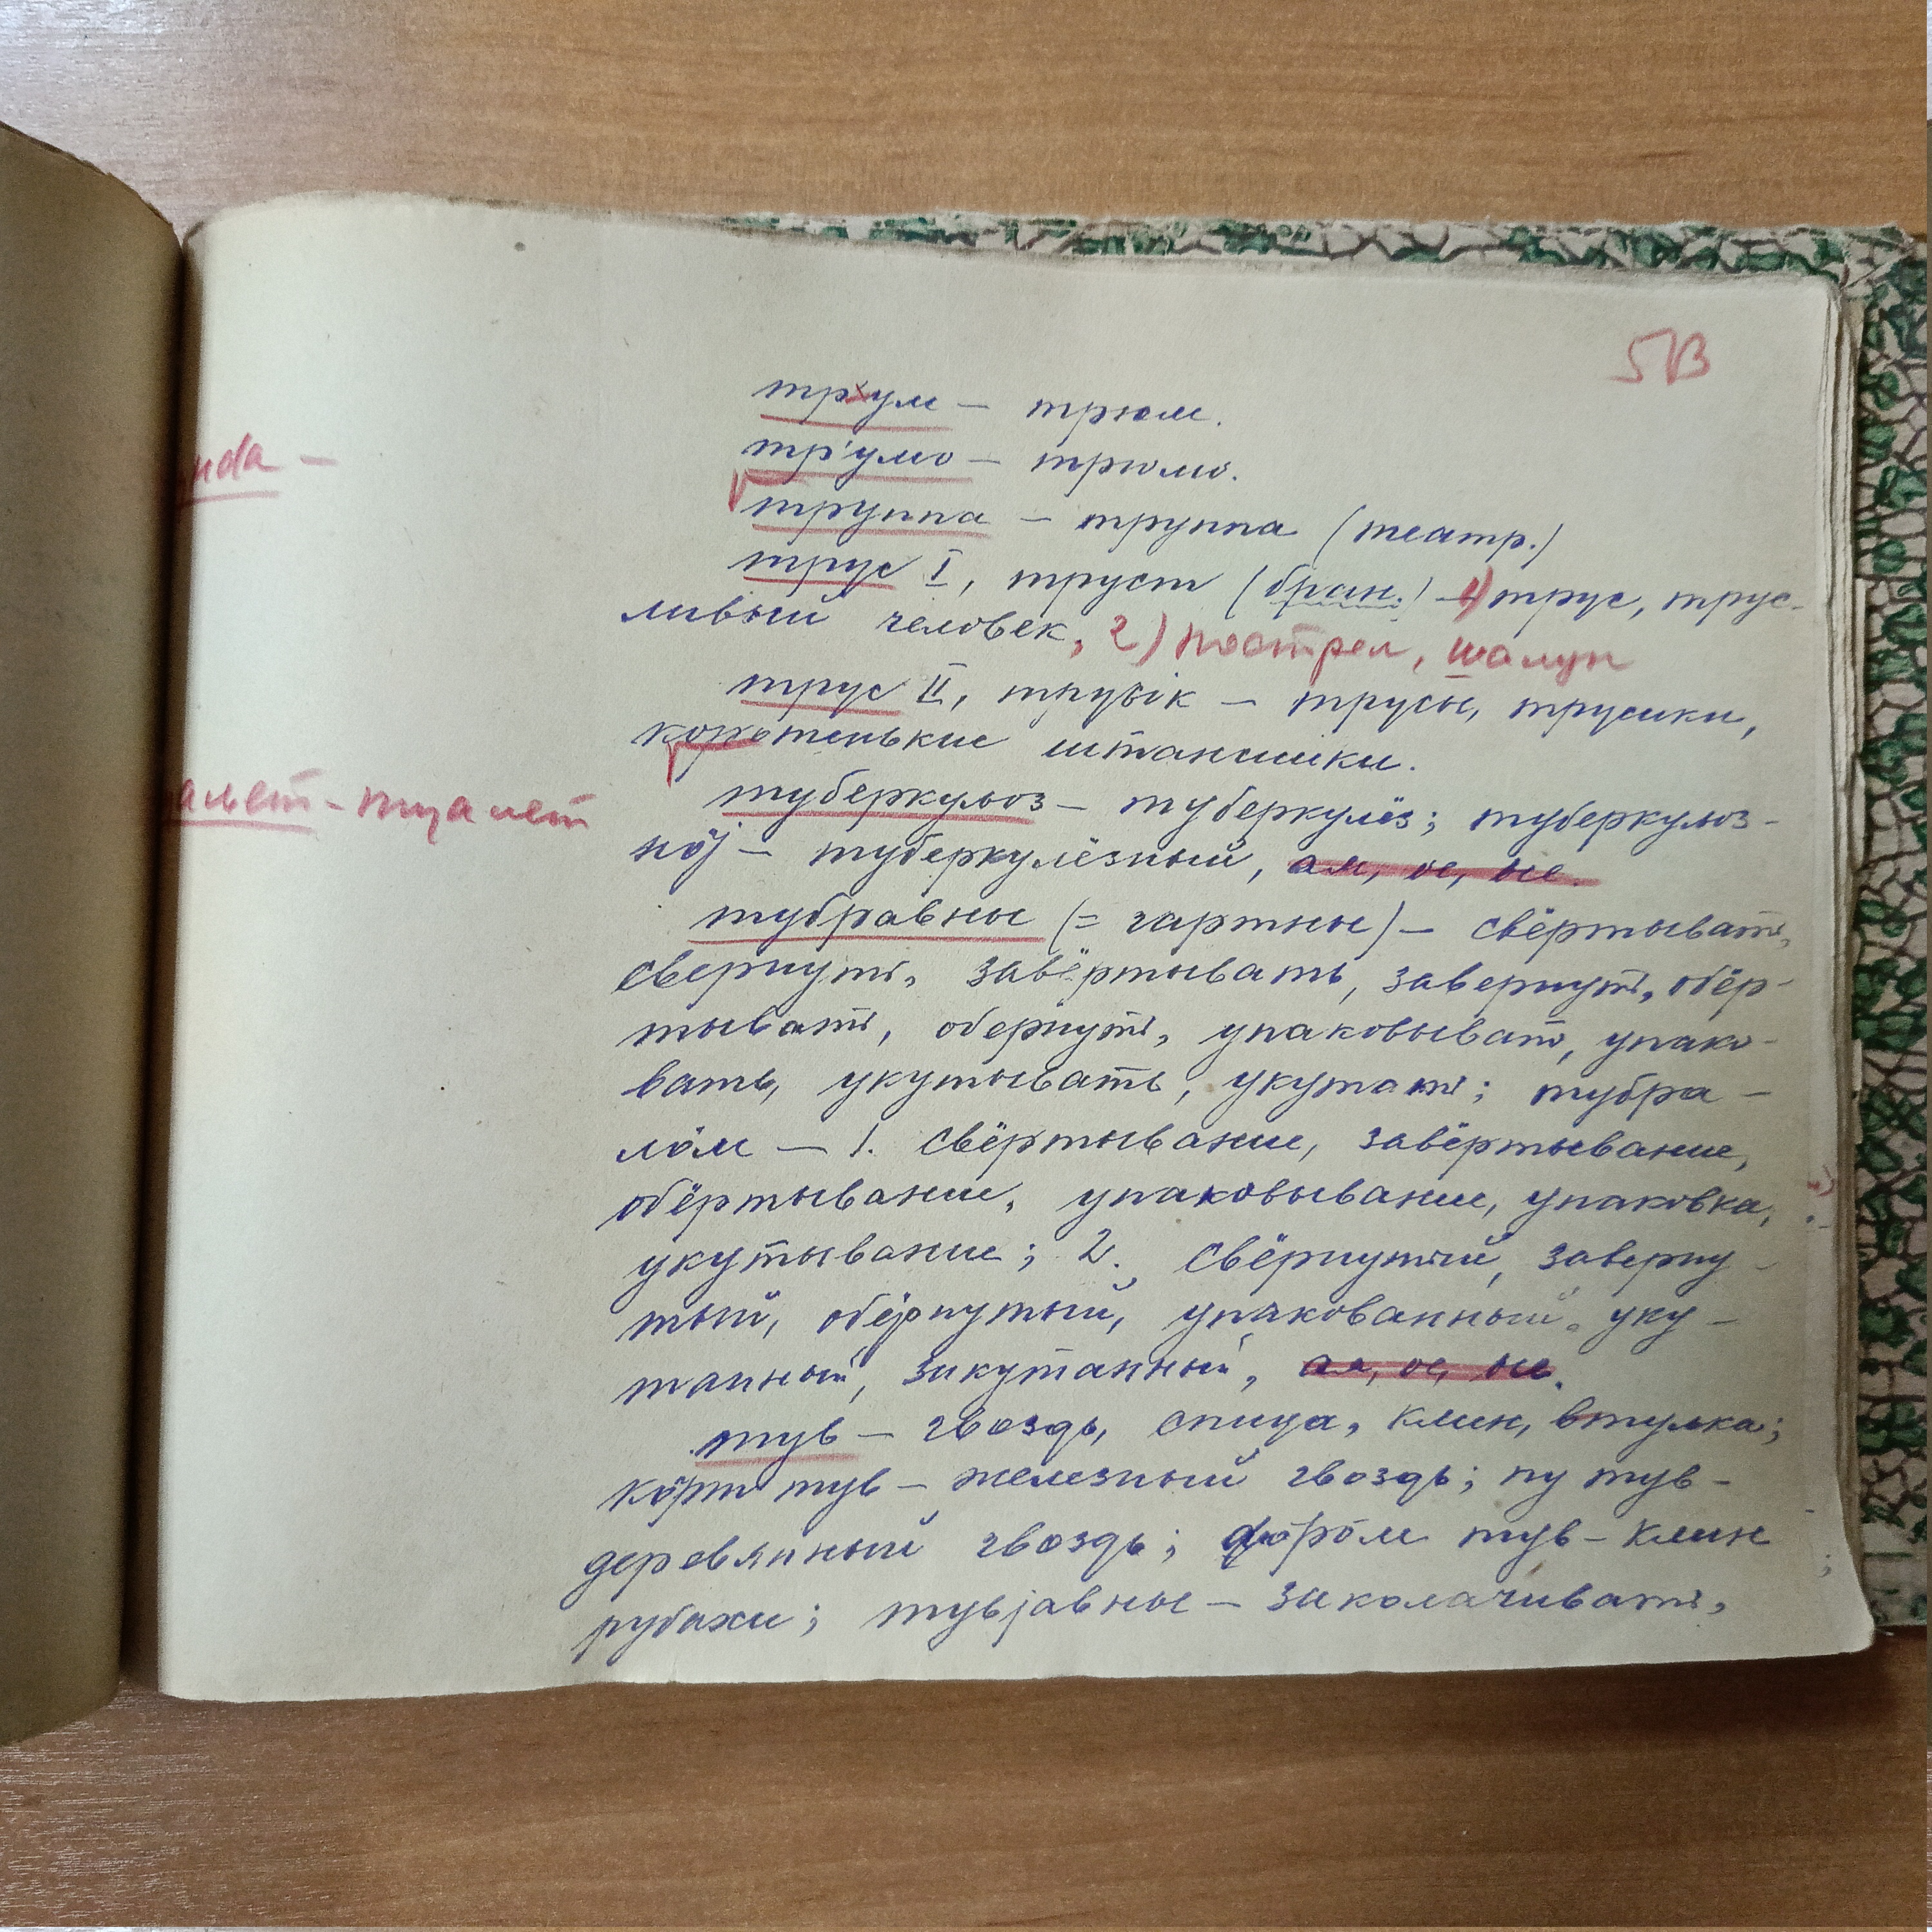 513
тр'ум — трюм.
тр'умо — трюмо.
nda —
труппа — труппа (театр.)
трус I, труст (бран.) — 1) трус, трус-
ливый человек, 2) пострел, шалун
трус II, трузік — трусы, трусики,
коротенькие штанишки.
алет - туалет
туберкульоз — туберкулёз; туберкульоз-
нӧj — туберкулёзный, ая, ое, ые.
тубравны (= гартны) — свёртывать,
свернуть, завёртывать, завернуть, обёр-
тывать, обернуть, упаковывать, упако-
вать, укутывать, укутать; тубра-
лӧм — 1. свёртывание, завёртывание,
обёртывание, упаковывание, упаковка,
укутывание; 2. свёрнутый, заверну-
тый, обёрнутый, упакованный, уку-
танный, закутанный, ая, ое, ые.
тув — гвоздь, спица, клин, втулка;
кӧрт тув — железный гвоздь; пу тув —
деревянный гвоздь; дӧрӧм тув — клин
рубахи; тувјавны — заколачивать,